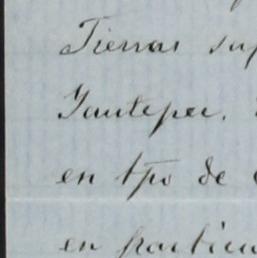 Tierras sup
Yautepec.
en tpo de
en particu